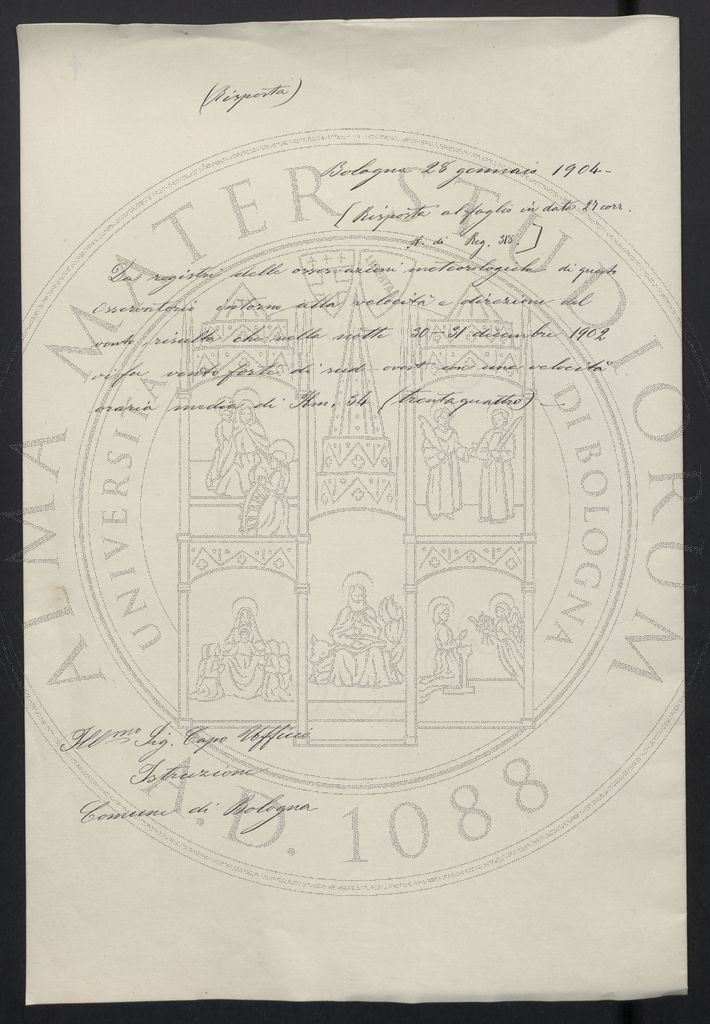 (Risposta)
Bologna 28 gennaio 1904 -
[Risposta al foglio in data 27 corr.
di Reg. 318.]
Da registri delle osservazioni meteorologiche di questo
Osservatorio intorno alla velocità e direzione del
vento risulta che nella notte 30-31 dicembre 1902
vi fu vento forte di sud ovest con una velocità
oraria media di Km. 34 (trentaquattro) —.
Ill.mo Sig. Capo Ufficio
Istruzione
Comune di Bologna
ALMA MATER STUDIORUM
UNIVERSITÀ DI BOLOGNA
A.D. 1088